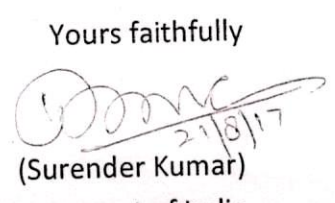 Yours faithfully
21/8/17
(Surender Kumar)
of India